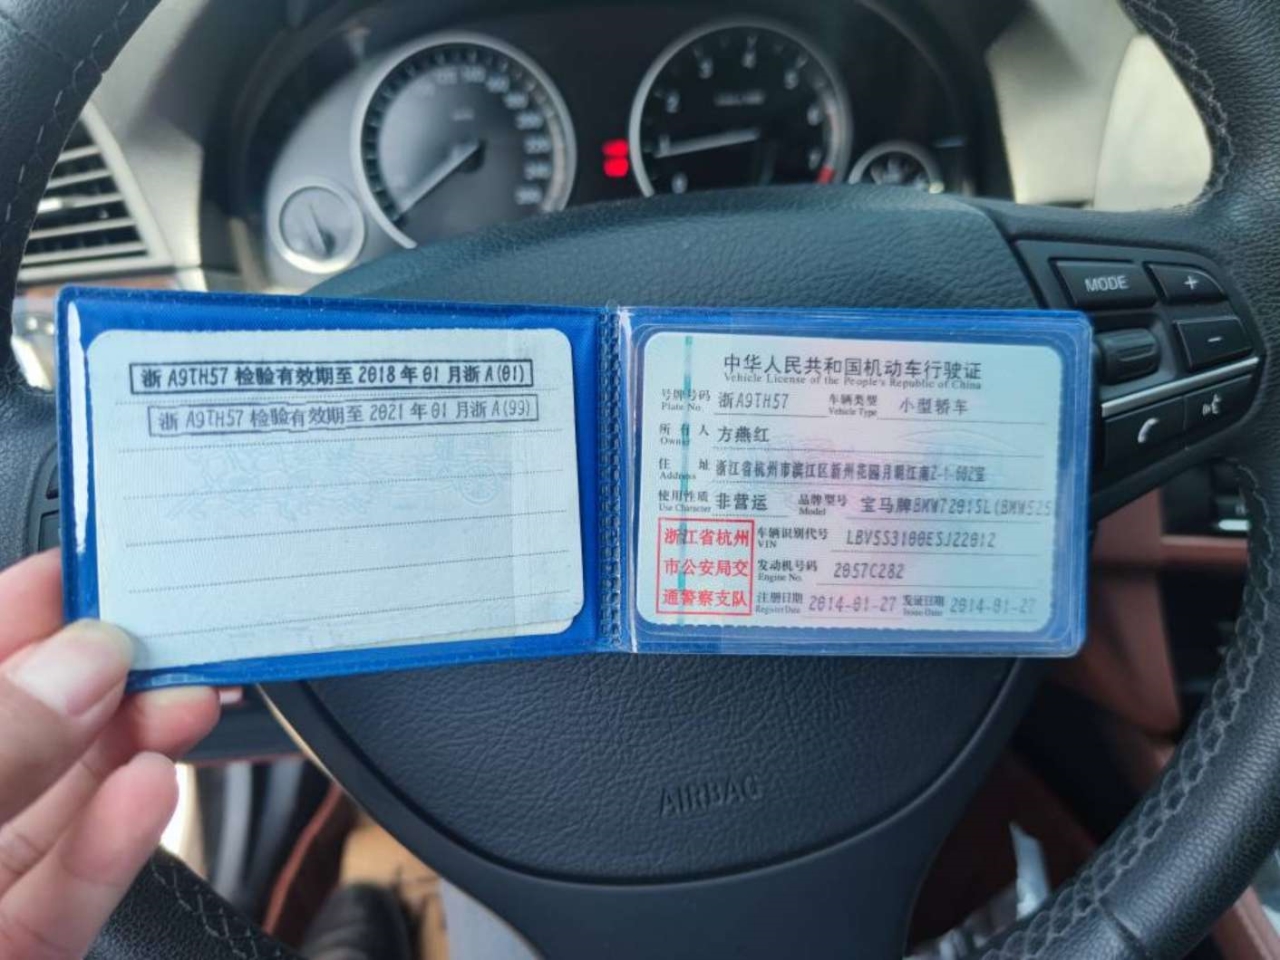 MODE
+
−
浙A9TH57检验有效期至2018年01月浙A(01)
浙A9TH57检验有效期至2021年01月浙A(99)
中华人民共和国机动车行驶证
Vehicle License of the People's Republic of China
号牌号码 浙A9TH57 车辆类型 小型轿车
Plate No. Vehicle Type
所有人 方燕红
Owner
住址 浙江省杭州市滨江区新州花园月明江南2-1-602室
Address
使用性质 非营运 品牌型号 宝马牌BMW7201SL(BMW525
Use Character Model
浙江省杭州
市公安局交
通警察支队
车辆识别代号 LBV5S3100ESJ22012
VIN
发动机号码 2057C282
Engine No.
注册日期 2014-01-27 发证日期 2014-01-27
Register Date Issue Date
AIRBAG